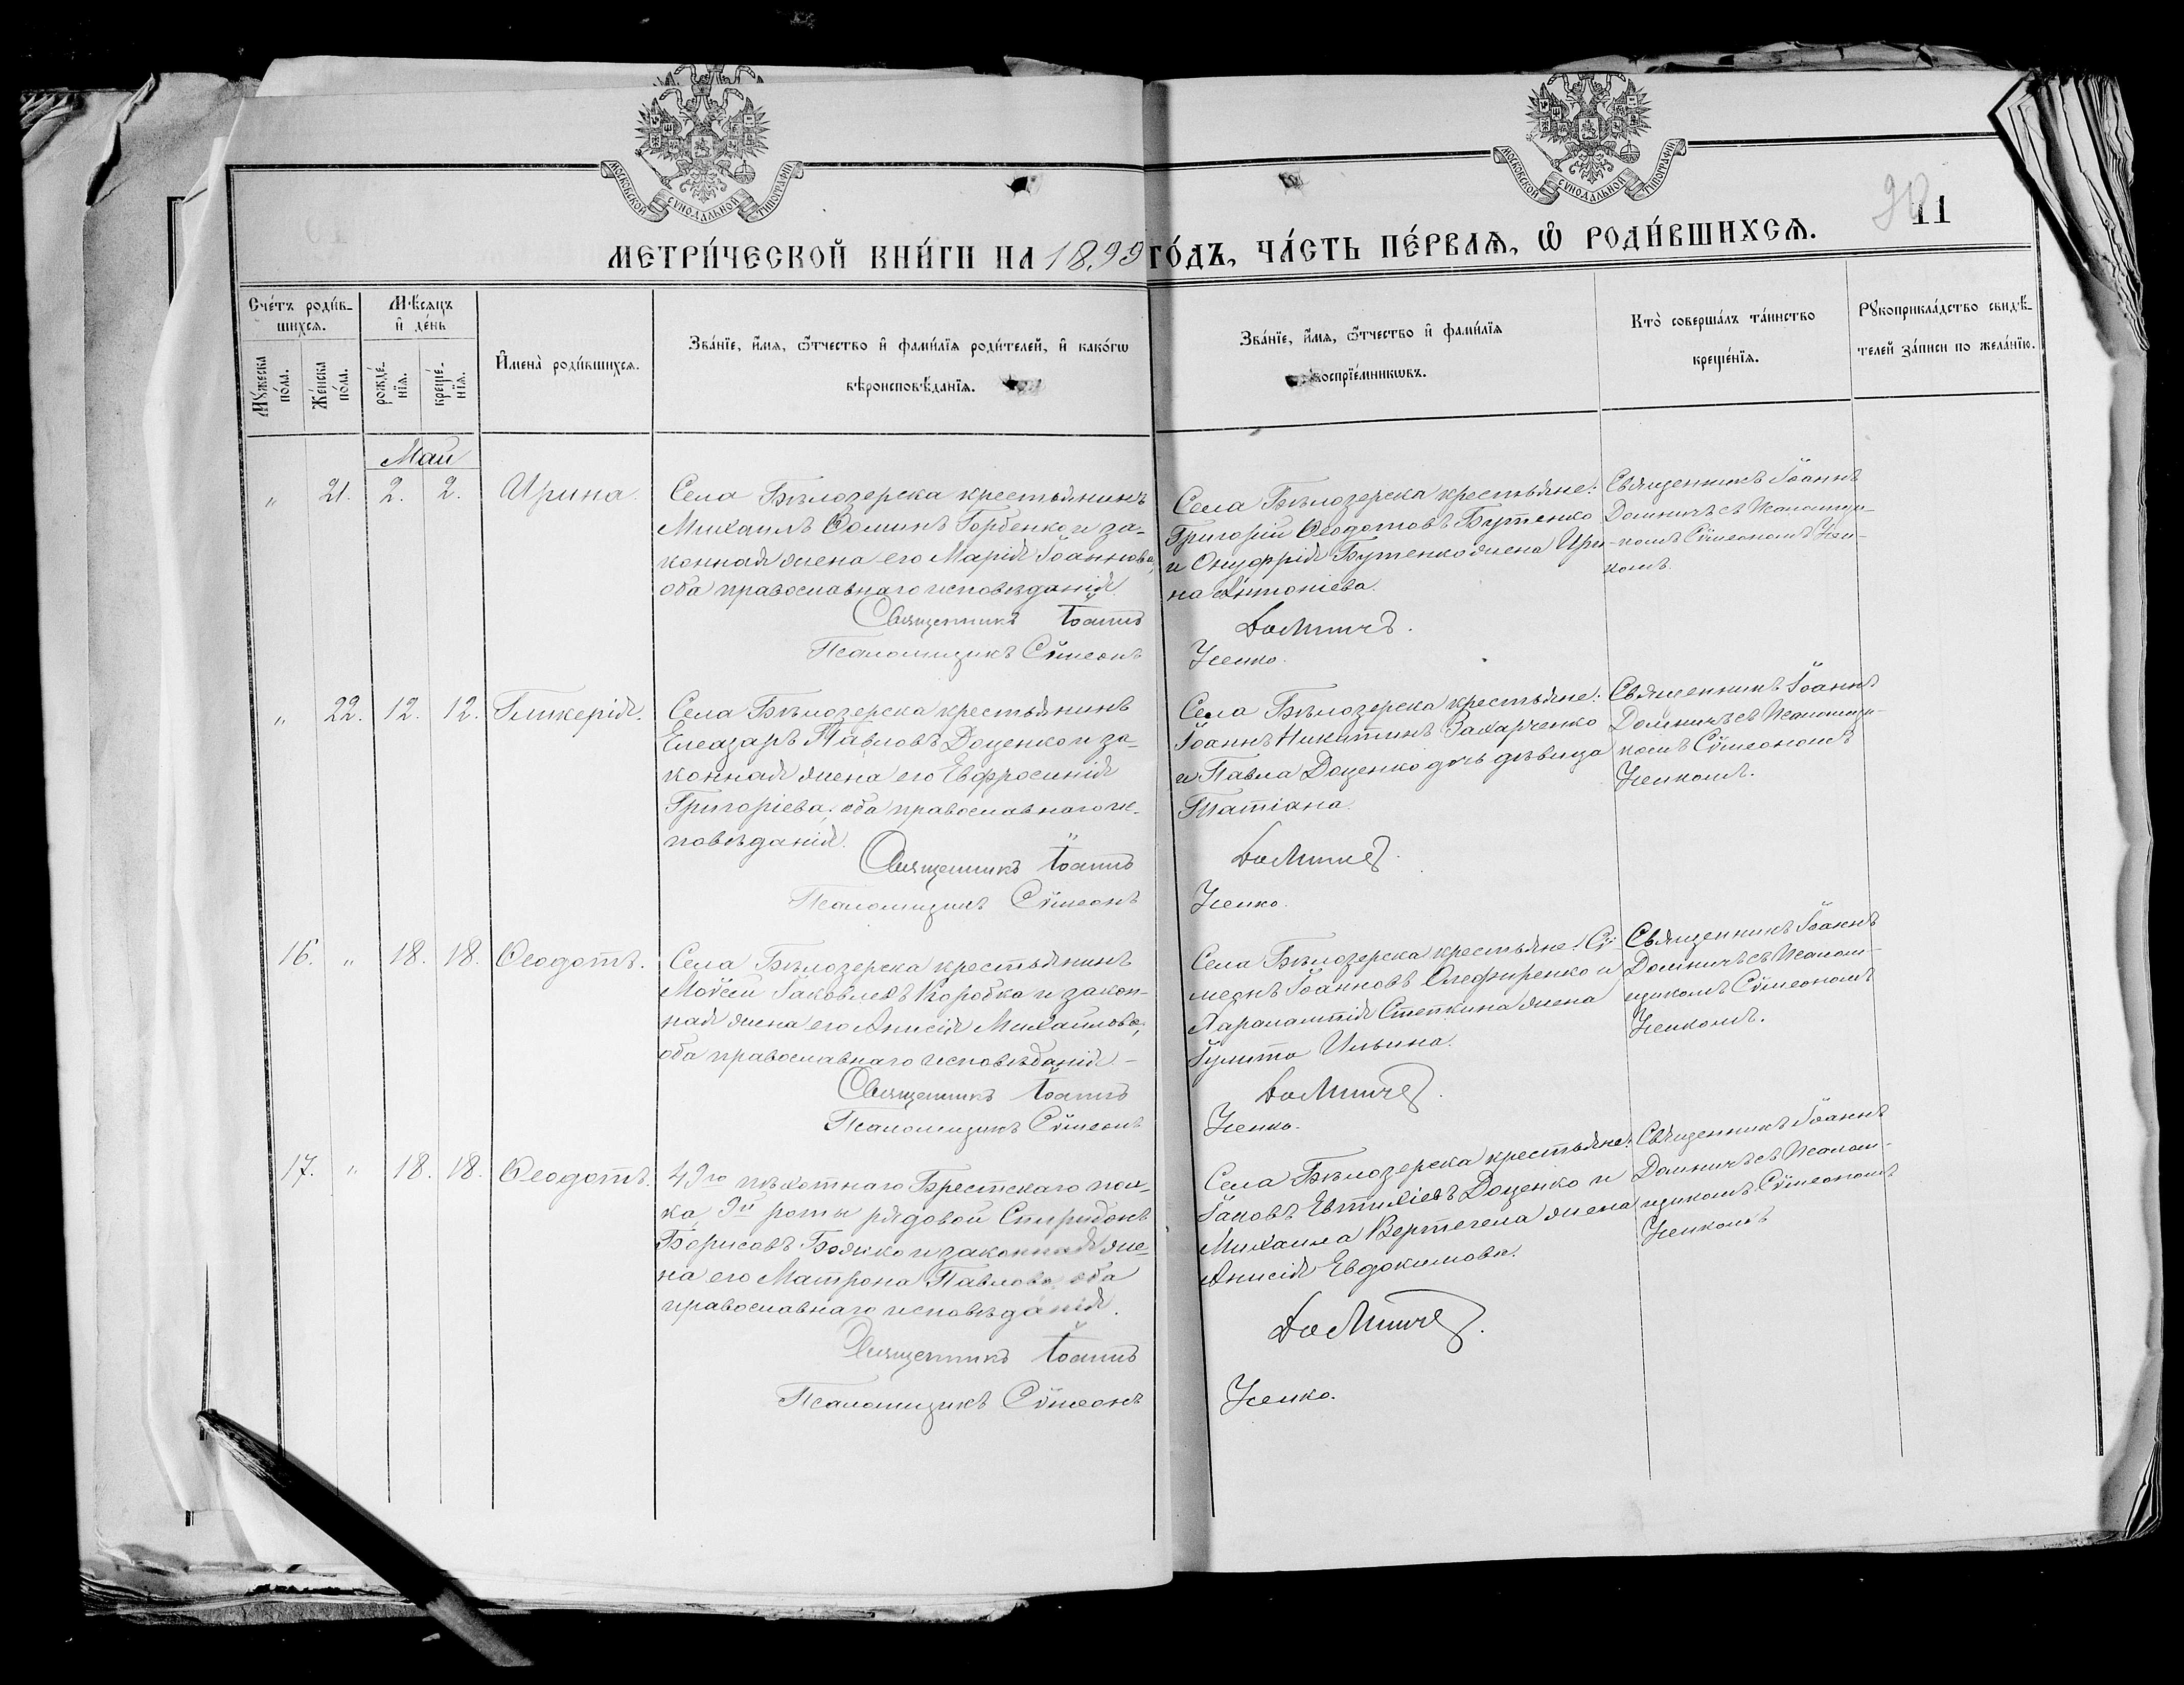 МОСКОВСКОЙ СѴНОДАЛЬНОЙ ТИПОГРАФІИ
МОСКОВСКОЙ СѴНОДАЛЬНОЙ ТИПОГРАФІИ
МЕТРИ́ЧЕСКОЙ КНИ́ГИ НА 1899 ГО́ДЪ, ЧА́СТЬ ПЕ́РВАѦ, Ѽ РОДИ́ВШИХСѦ.
90
11
Сче́тъ роди́в-
шихсѧ.
Мꙋ́жеска
по́ла.
Же́нска
по́ла.
Мѣ́сѧцъ
и҆ де́нь
рожде́-
нїѧ.
креще́-
нїѧ.
И҆мена̀ роди́вшихсѧ.
Зва́нїе, и҆́мѧ, ѻ҆́тчество и҆ фами́лїѧ роди́телей, и҆ како́гѡ
вѣроисповѣ́данїѧ.
Зва́нїе, и҆́мѧ, ѻ҆́тчество и҆ фами́лїѧ
воспрїе́мникѡвъ.
Кто̀ соверша́лъ та́инство
креще́нїѧ.
Рꙋкоприкла́дство свидѣ́-
телей за́писи по жела́нїю.
Май
„ 21. 2. 2. Ирина.
Села Бѣлозерска крестьянинъ
Михаилъ Ѳоминъ Горбенко и за-
конная жена его Марія Іоаннова,
оба православнаго исповѣданія.
Священникъ Іоаннъ
Псаломщикъ Сѵмеонъ
Села Бѣлозерска крестьяне:
Григорій Ѳеодотовъ Бутенко
и Онуфрія Бутенко жена Ири-
на Антоніева.
Доминичъ.
Усенко.
Священникъ Іоаннъ
Доминичъ съ псаломщи-
комъ Сѵмеономъ Усен-
комъ.
„ 22. 12. 12. Гликерія.
Села Бѣлозерска крестьянинъ
Елеазаръ Павловъ Доценко и за-
конная жена его Евфросинія
Григоріева, оба православнаго ис-
повѣданія.
Священникъ Іоаннъ
Псаломщикъ Сѵмеонъ
Села Бѣлозерска крестьяне:
Іоаннъ Никитинъ Захарченко
и Павла Доценко дочь дѣвица
Татіана.
Доминичъ.
Усенко.
Священникъ Іоаннъ
Доминичъ съ псаломщи-
комъ Сѵмеономъ
Усенкомъ.
16. „ 18. 18. Ѳеодотъ.
Села Бѣлозерска крестьянинъ
Моѵсей Іаковлевъ Коробка и закон-
ная жена его Анисія Михайлова,
оба православнаго исповѣданія.-
Священникъ Іоаннъ
Псаломщикъ Сѵмеонъ
Села Бѣлозерска крестьяне: Сѵ-
меонъ Іоанновъ Олефиренко и
Харалампія Степкина жена
Іулитта Ильина.
Доминичъ.
Усенко.
Священникъ Іоаннъ
Доминичъ съ псалом-
щикомъ Сѵмеономъ
Усенкомъ.
17. „ 18. 18. Ѳеодотъ.
49го пѣхотнаго Брестскаго пол-
ка 9й роты рядовой Спиридонъ
Борисовъ Божко и законная же-
на его Матрона Павлова, оба
православнаго исповѣданія.
Священникъ Іоаннъ
Псаломщикъ Сѵмеонъ
Села Бѣлозерска крестьяне:
Іаковъ Евтихіевъ Доценко и
Михаила Вертегела жена
Анисія Евдокимова.
Доминичъ.
Усенко.
Священникъ Іоаннъ
Доминичъ съ псалом-
щикомъ Сѵмеономъ
Усенкомъ